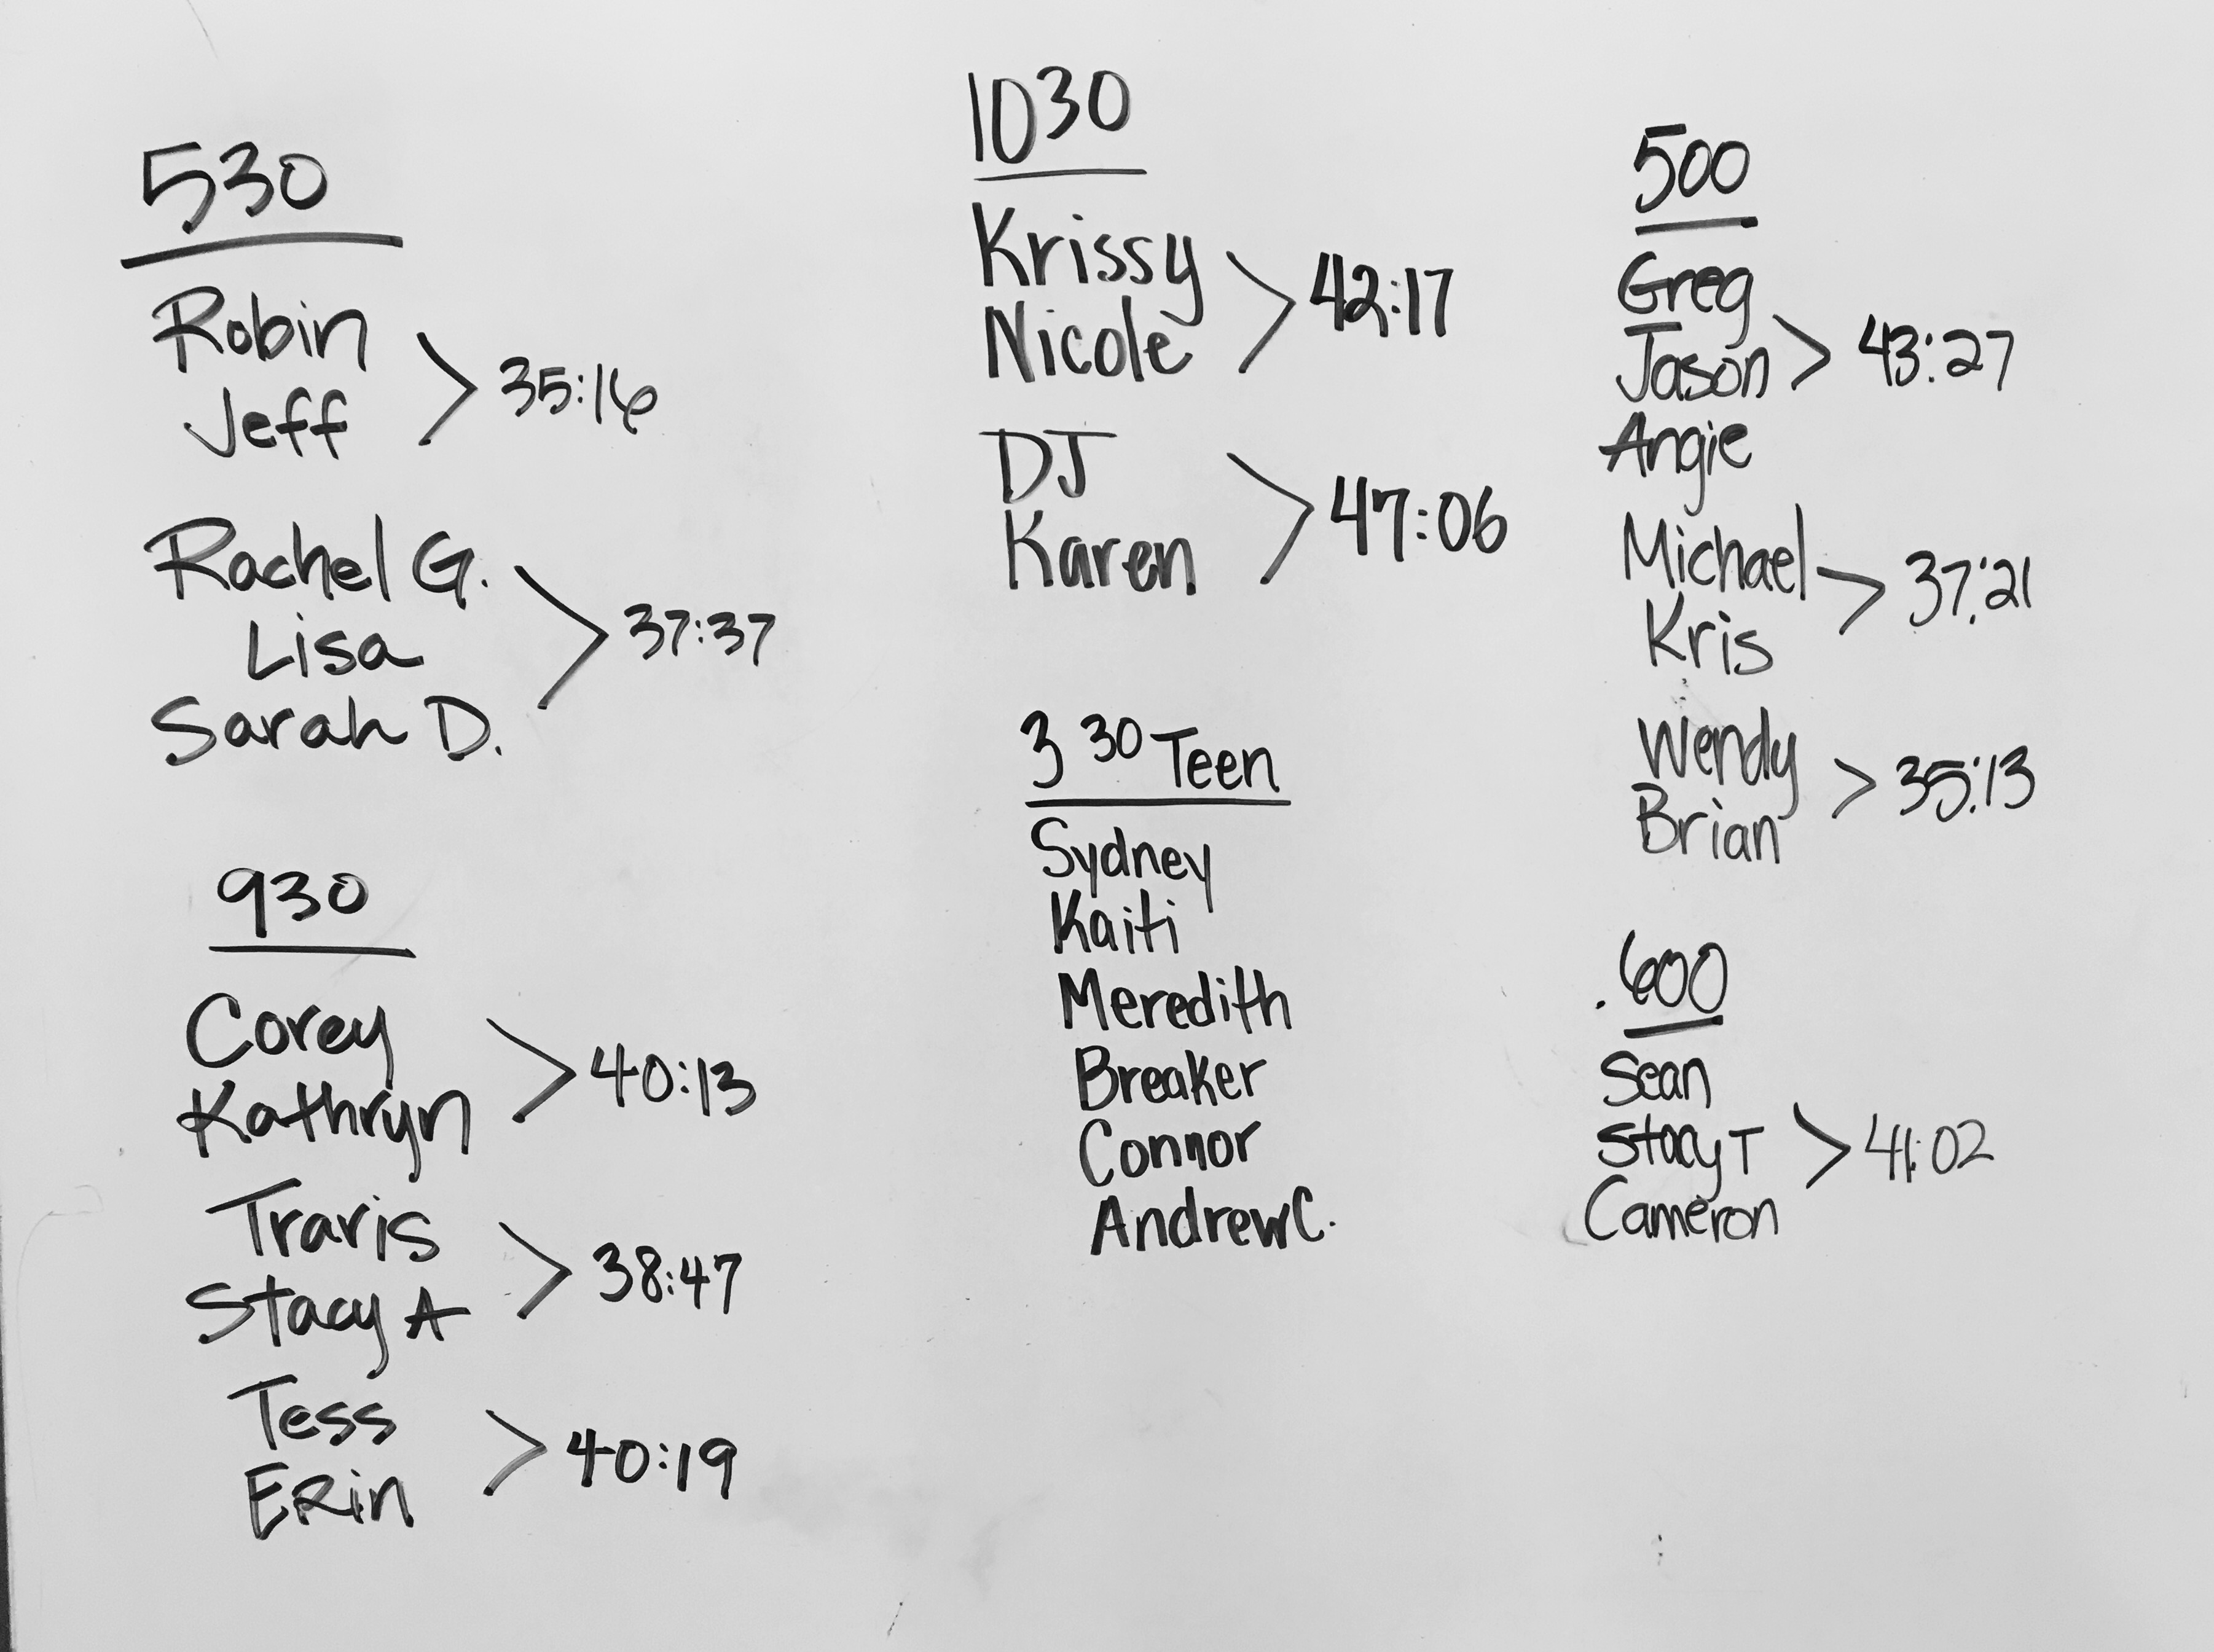 530
Robin
Jeff
> 35:16
Rachel G.
Lisa
Sarah D.
> 37:37
930
Corey
Kathryn
> 40:13
Travis
Stacy A
> 38:47
Tess
ERin
> 40:19
1030
Krissy
Nicole
> 42:17
DJ
Karen
> 47:06
3 30 Teen
Sydney
Kaiti
Meredith
Breaker
Connor
Andrew C.
500
Greg
Jason
Angie
> 43:27
Michael
Kris
> 37:21
Wendy
Brian
> 35:13
600
Sean
Stacy T
Cameron
> 41:02